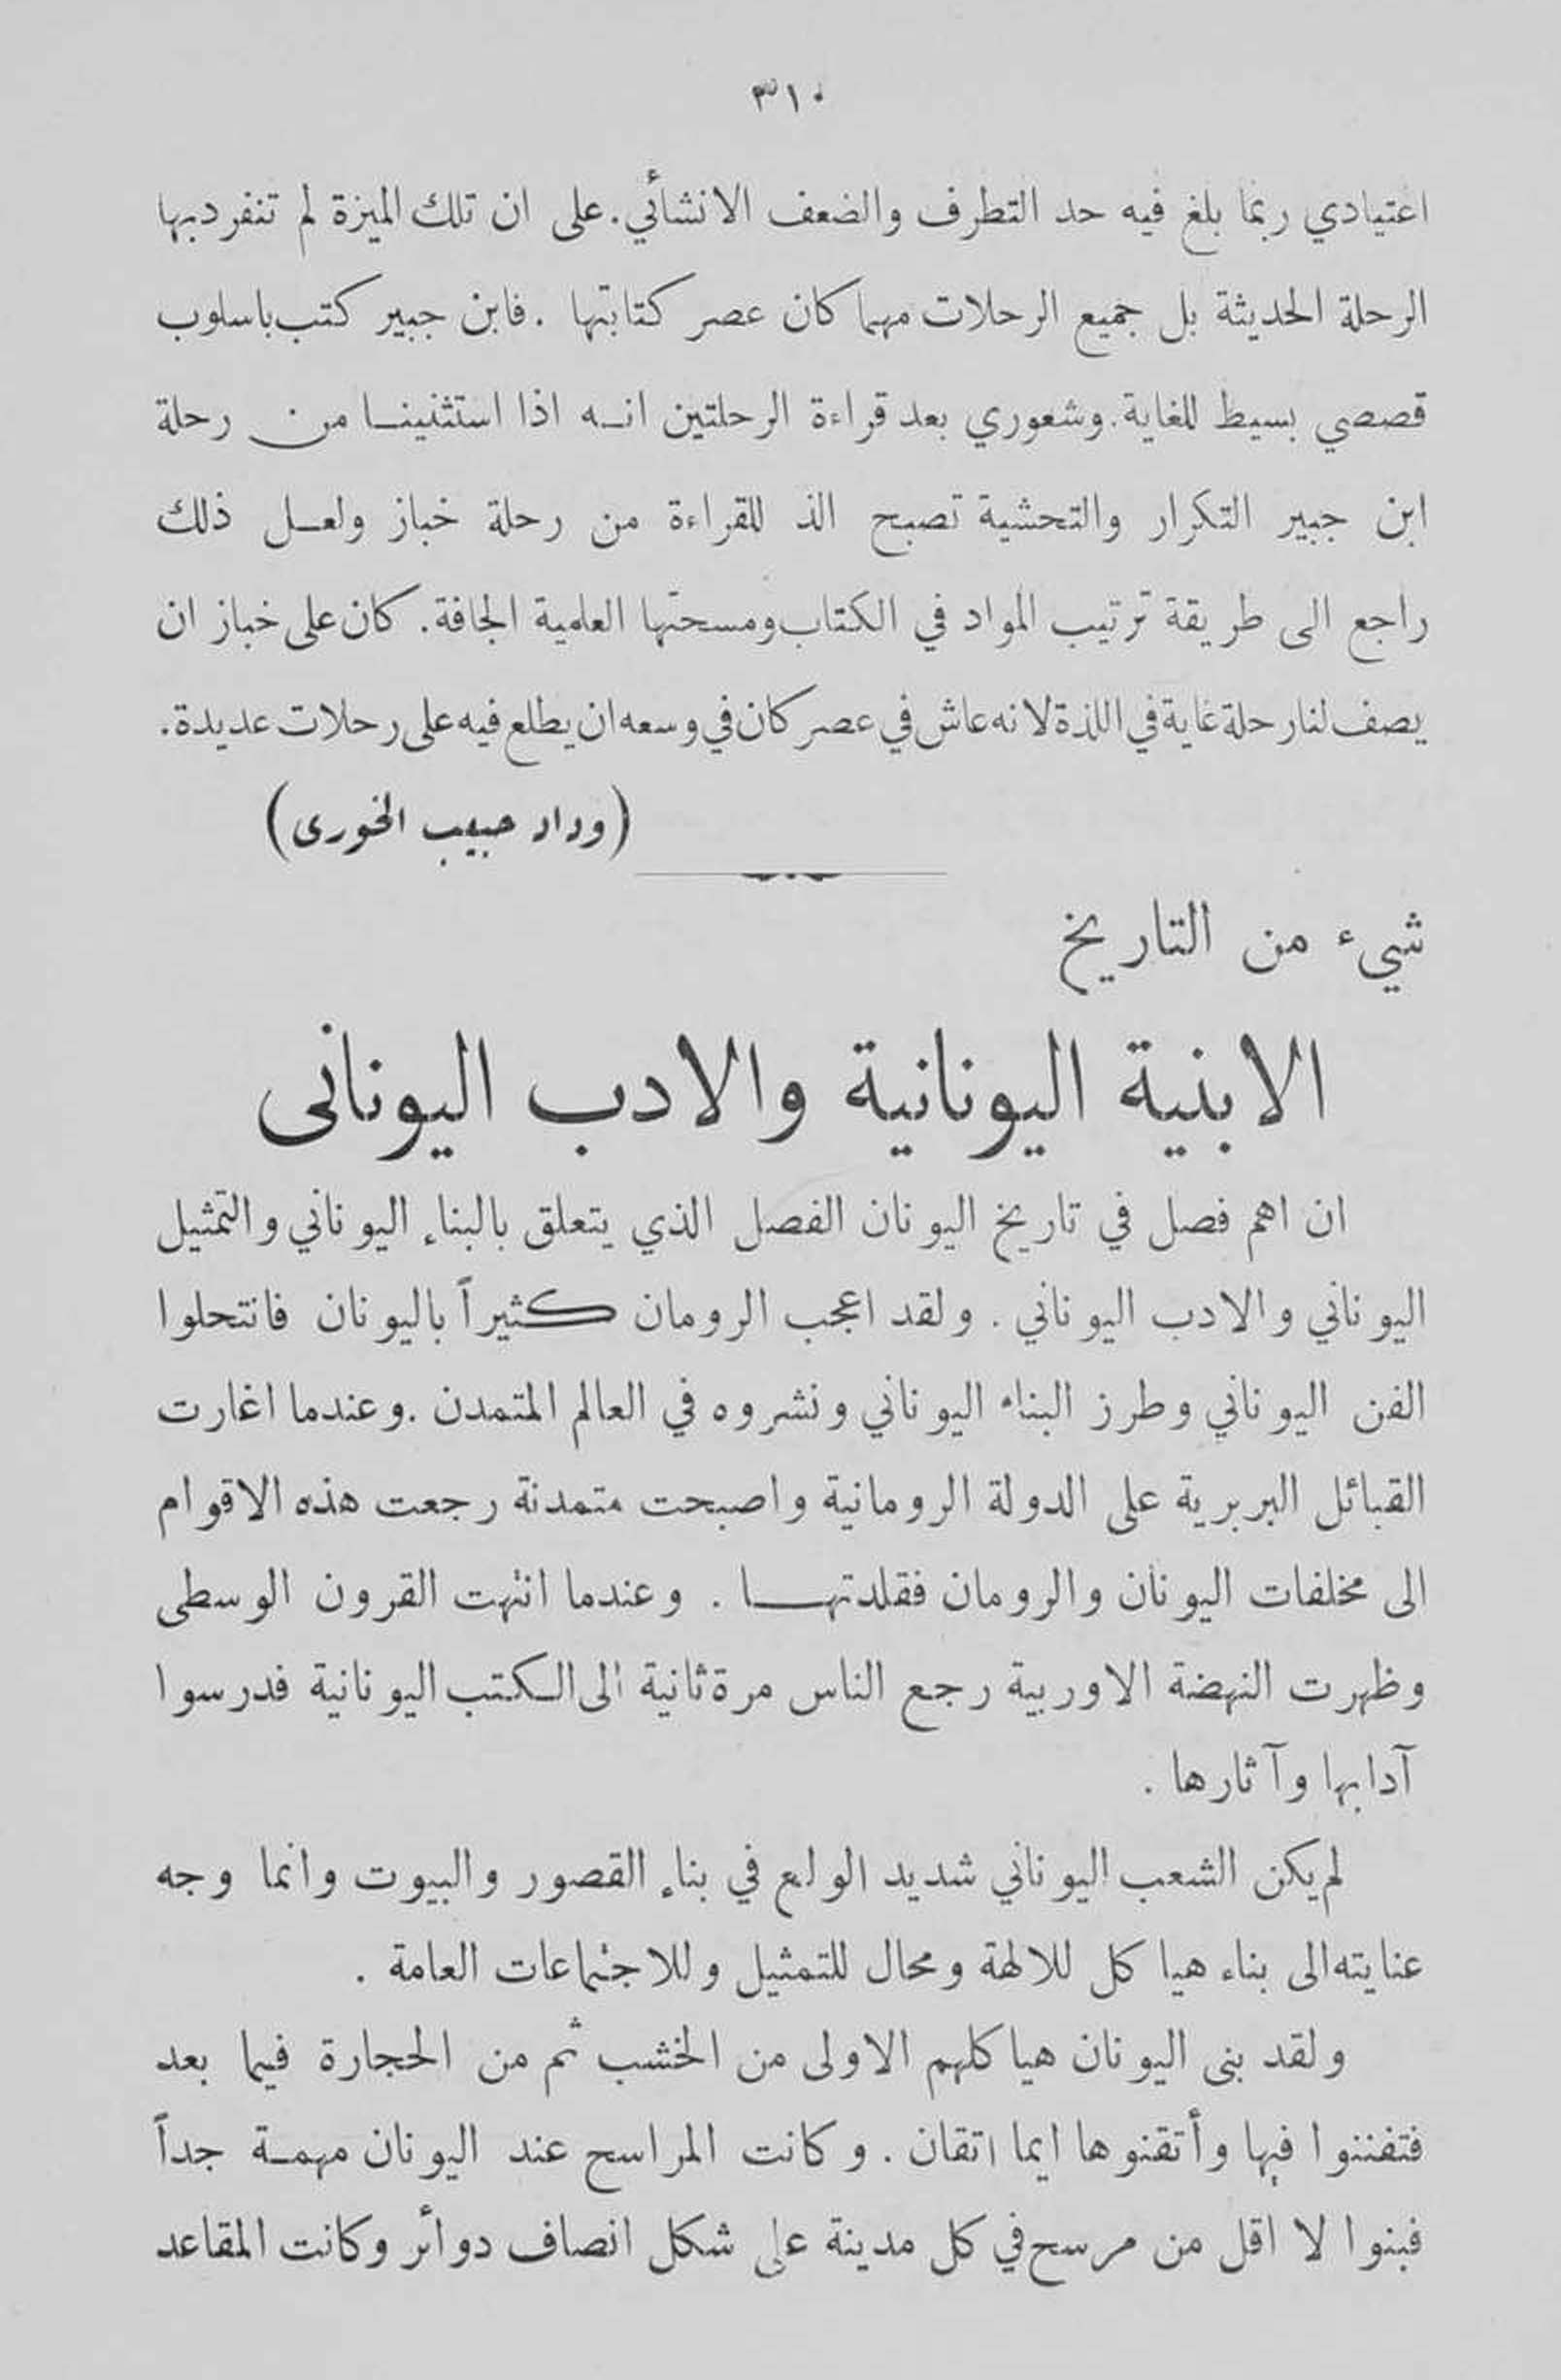 ٣١٠
اعتيادي ربما بلغ فيه حد التطرف والضعف الانشائي. على ان تلك الميزة لم تنفرد بها
الرحلة الحديثة بل جميع الرحلات مهما كان عصر كتابتها . فابن جبير كتب باسلوب
قصصي بسيط للغاية. وشعوري بعد قراءة الرحلتين انه اذا استثنينا من رحلة
ابن جبير التكرار والتحشية تصبح الذ للقراءة من رحلة خباز ولعل ذلك
راجع الى طريقة ترتيب المواد في الكتاب ومسحتها العلمية الجافة. كان على خباز ان
يصف لنا رحلة غاية في اللذة لانه عاش في عصر كان في وسعه ان يطلع فيه على رحلات عديدة.
(وداد حبيب الخورى)
شيء من التاريخ
الابنية اليونانية والادب اليونانى
ان اهم فصل في تاريخ اليونان الفصل الذي يتعلق بالبناء اليوناني والتمثيل
اليوناني والادب اليوناني . ولقد اعجب الرومان كثيراً باليونان فانتحلوا
الفن اليوناني وطرز البناء اليوناني ونشروه في العالم المتمدن . وعندما اغارت
القبائل البربرية على الدولة الرومانية واصبحت متمدنة رجعت هذه الاقوام
الى مخلفات اليونان والرومان فقلدتها . وعندما انتهت القرون الوسطى
وظهرت النهضة الاوربية رجع الناس مرة ثانية الى الكتب اليونانية فدرسوا
آدابها وآثارها .
لم يكن الشعب اليوناني شديد الولع في بناء القصور والبيوت وانما وجه
عنايته الى بناء هياكل للالهة ومحال للتمثيل وللاجتماعات العامة .
ولقد بنى اليونان هياكلهم الاولى من الخشب ثم من الحجارة فيما بعد
فتفننوا فيها وأتقنوها ايما اتقان . وكانت المراسح عند اليونان مهمة جداً
فبنوا لا اقل من مرسح في كل مدينة على شكل انصاف دوائر وكانت المقاعد